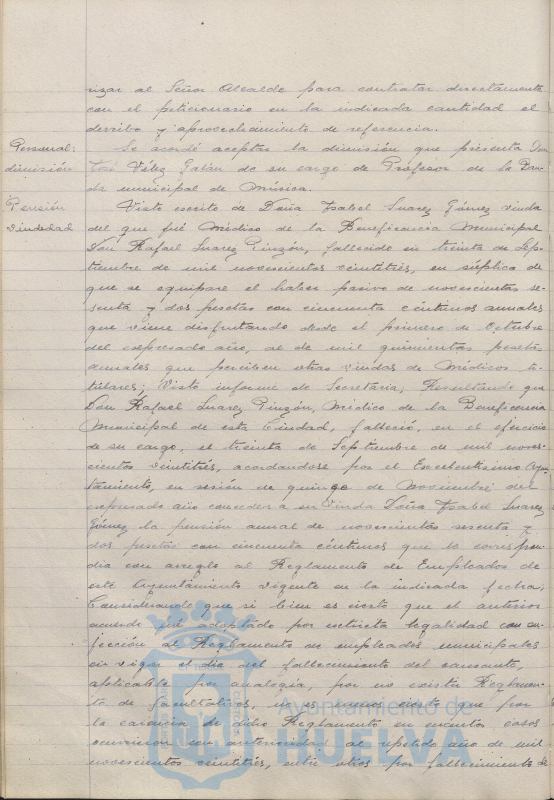 rizar al Señor Alcalde para contratar directamente
con el peticionario en la indicada cantidad el
derribo y aprovechamiento de referencia.
Personal: dimisión
Se acordó aceptar la dimisión que presenta Don
José Vélez Galán de su cargo de Profesor de la Ban-
da municipal de Música.
Pensión viudedad
Visto escrito de Doña Ysabel Suarez Gómez viuda
del que fué Médico de la Beneficencia Municipal
Don Rafael Suarez Pinzón, fallecido en treinta de Sep-
tiembre de mil novecientos veintitrés, en súplica de
que se equipare el haber pasivo de novecientas se-
senta y dos pesetas con cincuenta céntimos anuales
que viene disfrutando desde el primero de Octubre
del expresado año, al de mil quinientas pesetas
anuales que perciben otras viudas de Médicos ti-
tulares; Visto informe de Secretaría; Resultando que
Don Rafael Suarez Pinzón, Médico de la Beneficencia
Municipal de esta Ciudad, falleció, en el ejercicio
de su cargo, el treinta de Septiembre de mil nove-
cientos veintitrés, acordandose por el Excelentísimo Ayun-
tamiento, en sesión de quince de Noviembre del
expresado año conceder a su viuda Doña Ysabel Suarez
Gómez la pensión anual de novecientas sesenta y
dos pesetas con cincuenta céntimos que le correspon-
día con arreglo al Reglamento de Empleados de
este Ayuntamiento vigente en la indicada fecha;
Considerando que si bien es cierto que el anterior
acuerdo fué adoptado por estricta legalidad con su-
jección al Reglamento de empleados municipales
en vigor el día del fallecimiento del causante,
aplicable por analogía, por no existir Reglamen-
to de facultativos, no es menos cierto que por
la carencia de dicho Reglamento en cuantos casos
ocurrieron con anterioridad al repetido año de mil
novecientos veintitrés, entre otros por fallecimiento de
Ayuntamiento de
HUELVA